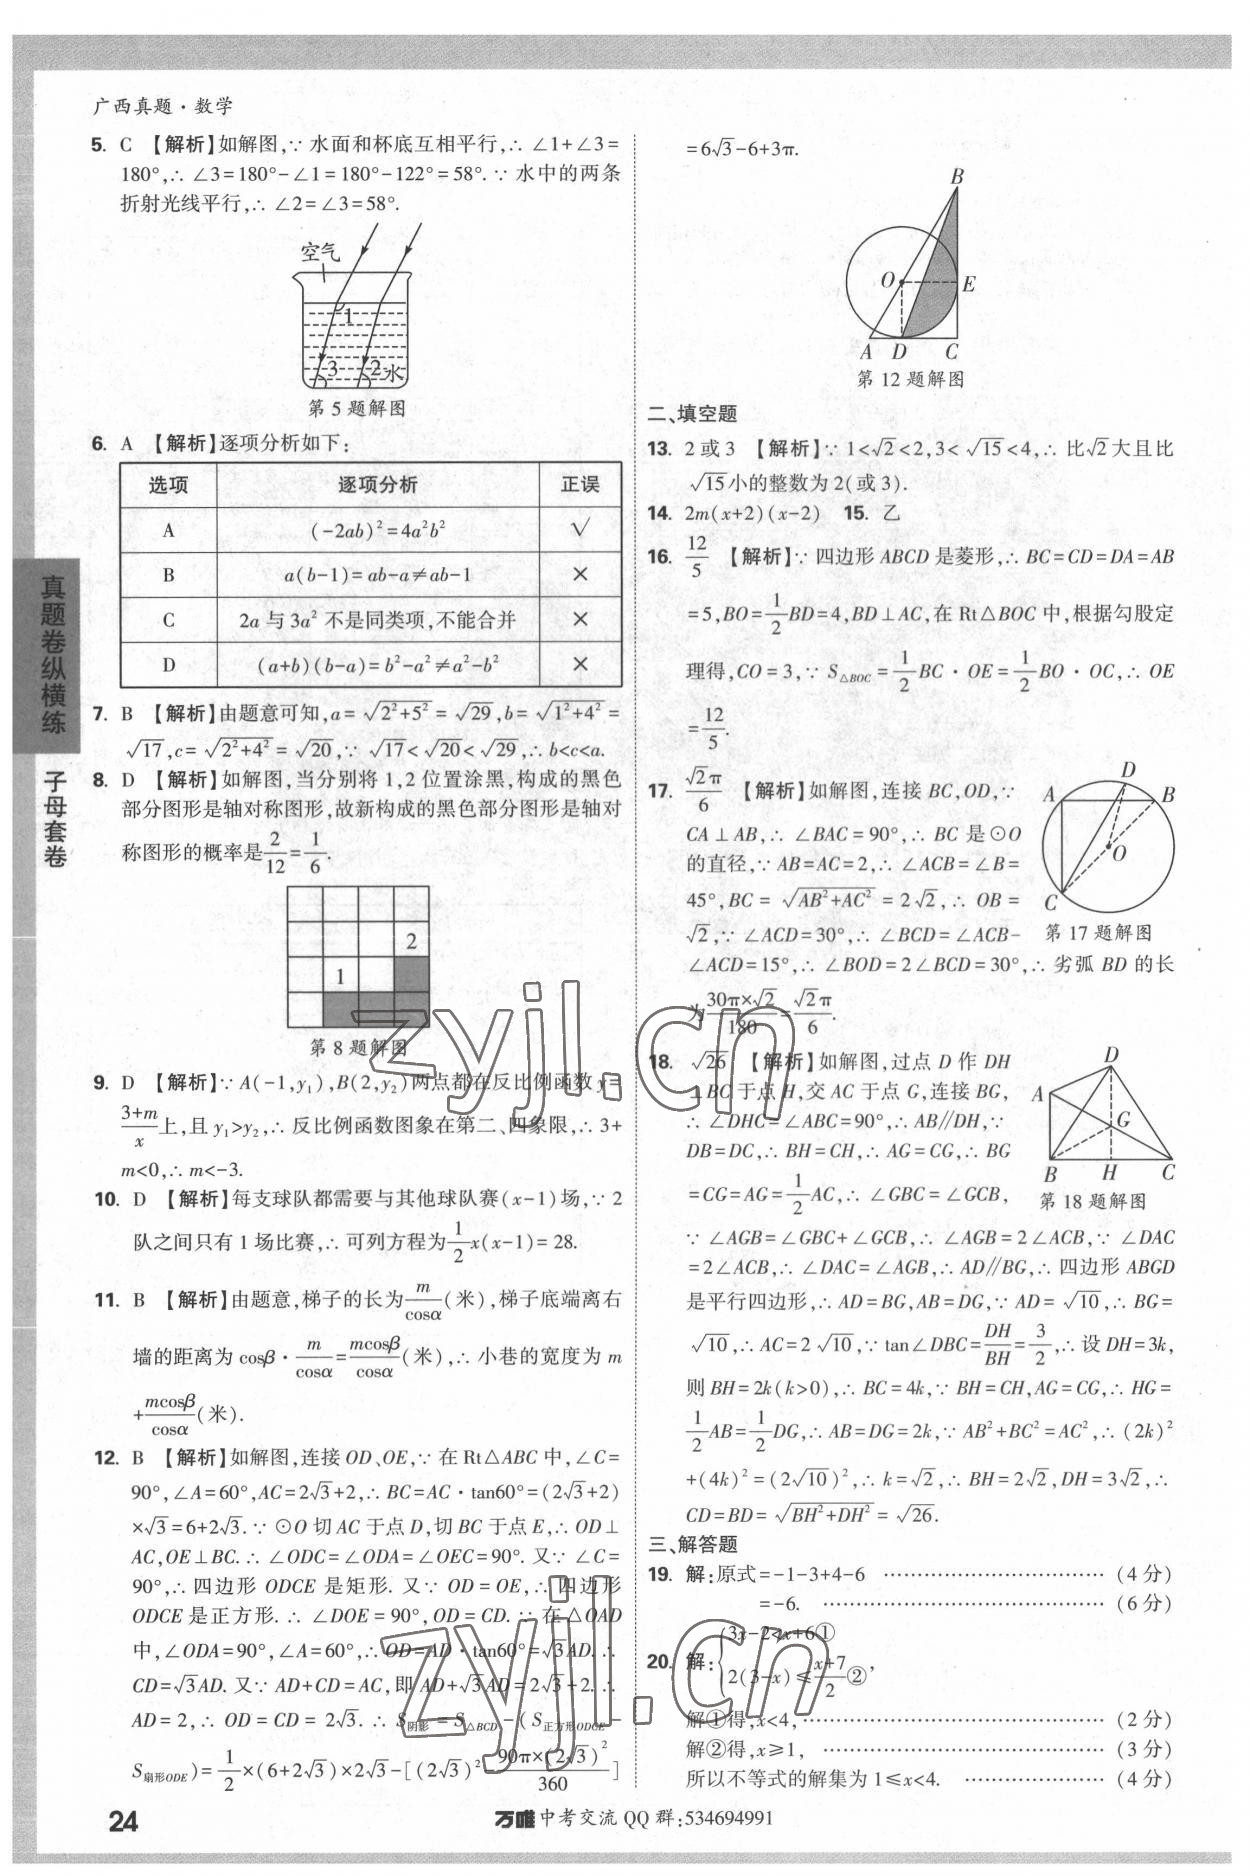 广西真题·数学
5. C 【解析】如解图,∵ 水面和杯底互相平行,∴ ∠1+∠3=
180°,∴ ∠3=180°-∠1=180°-122°=58°.∵ 水中的两条
折射光线平行,∴ ∠2=∠3=58°.
空气
1
3 2 水
第 5 题解图
6. A 【解析】逐项分析如下:
选项 逐项分析 正误
A (-2ab)²=4a²b² √
B a(b-1)=ab-a≠ab-1 ×
C 2a 与 3a² 不是同类项,不能合并 ×
D (a+b)(b-a)=b²-a²≠a²-b² ×
7. B 【解析】由题意可知,a=√(2²+5²)=√29,b=√(1²+4²)=
√17,c=√(2²+4²)=√20,∵ √17<√20<√29,∴ b<c<a.
8. D 【解析】如解图,当分别将 1,2 位置涂黑,构成的黑色
部分图形是轴对称图形,故新构成的黑色部分图形是轴对
称图形的概率是2/12=1/6.
2
1
第 8 题解图
9. D 【解析】∵ A(-1,y₁),B(2,y₂)两点都在反比例函数 y=
(3+m)/x上,且 y₁>y₂,∴ 反比例函数图象在第二、四象限,∴ 3+
m<0,∴ m<-3.
10. D 【解析】每支球队都需要与其他球队赛(x-1)场,∵ 2
队之间只有 1 场比赛,∴ 可列方程为1/2x(x-1)=28.
11. B 【解析】由题意,梯子的长为m/cosα(米),梯子底端离右
墙的距离为 cosβ·m/cosα=mcosβ/cosα(米),∴ 小巷的宽度为 m
+mcosβ/cosα(米).
12. B 【解析】如解图,连接 OD、OE,∵ 在 Rt△ABC 中,∠C=
90°,∠A=60°,AC=2√3+2,∴ BC=AC·tan60°=(2√3+2)
×√3=6+2√3.∵ ⊙O 切 AC 于点 D,切 BC 于点 E,∴ OD⊥
AC,OE⊥BC.∴ ∠ODC=∠ODA=∠OEC=90°.又∵ ∠C=
90°,∴ 四边形 ODCE 是矩形.又∵ OD=OE,∴ 四边形
ODCE 是正方形.∴ ∠DOE=90°,OD=CD.∵ 在△OAD
中,∠ODA=90°,∠A=60°,∴ OD=AD·tan60°=√3AD.∴
CD=√3AD.又∵ AD+CD=AC,即 AD+√3AD=2√3+2.∴
AD=2,∴ OD=CD=2√3.∴ S阴影=S△BCD-(S正方形ODCE-
S扇形ODE)=1/2×(6+2√3)×2√3-[(2√3)²-90π×(2√3)²/360]
=6√3-6+3π.
B
O E
A D C
第 12 题解图
二、填空题
13. 2 或 3 【解析】∵ 1<√2<2,3<√15<4,∴ 比√2大且比
√15小的整数为 2(或 3).
14. 2m(x+2)(x-2) 15. 乙
16. 12/5 【解析】∵ 四边形 ABCD 是菱形,∴ BC=CD=DA=AB
=5,BO=1/2BD=4,BD⊥AC,在 Rt△BOC 中,根据勾股定
理得,CO=3,∵ S△BOC=1/2BC·OE=1/2BO·OC,∴ OE
=12/5.
17. √2π/6 【解析】如解图,连接 BC,OD,∵
CA⊥AB,∴ ∠BAC=90°,∴ BC 是⊙O
的直径,∵ AB=AC=2,∴ ∠ACB=∠B=
45°,BC=√(AB²+AC²)=2√2,∴ OB=
√2,∵ ∠ACD=30°,∴ ∠BCD=∠ACB-
∠ACD=15°,∴ ∠BOD=2∠BCD=30°,∴ 劣弧 BD 的长
为30π×√2/180=√2π/6.
D
A B
O
C
第 17 题解图
18. √26 【解析】如解图,过点 D 作 DH
⊥BC 于点 H,交 AC 于点 G,连接 BG,
∴ ∠DHC=∠ABC=90°,∴ AB∥DH,∵
DB=DC,∴ BH=CH,∴ AG=CG,∴ BG
=CG=AG=1/2AC,∴ ∠GBC=∠GCB,
D
A
G
B H C
第 18 题解图
∵ ∠AGB=∠GBC+∠GCB,∴ ∠AGB=2∠ACB,∵ ∠DAC
=2∠ACB,∴ ∠DAC=∠AGB,∴ AD∥BG,∴ 四边形 ABGD
是平行四边形,∴ AD=BG,AB=DG,∵ AD=√10,∴ BG=
√10,∴ AC=2√10,∵ tan∠DBC=DH/BH=3/2,∴ 设 DH=3k,
则 BH=2k(k>0),∴ BC=4k,∵ BH=CH,AG=CG,∴ HG=
1/2AB=1/2DG,∴ AB=DG=2k,∵ AB²+BC²=AC²,∴ (2k)²
+(4k)²=(2√10)²,∴ k=√2,∴ BH=2√2,DH=3√2,∴
CD=BD=√(BH²+DH²)=√26.
三、解答题
19. 解:原式=-1-3+4-6 ……………………………(4 分)
=-6. ……………………………………(6 分)
20. 解:{3x-2<x+6①
2(3-x)≤(x+7)/2②,
解①得,x<4,………………………………………(2 分)
解②得,x≥1, ……………………………………(3 分)
所以不等式的解集为 1≤x<4. …………………(4 分)
真题卷纵横练
子母套卷
zyjl.cn
zyjl.cn
24
万唯中考交流 QQ 群:534694991